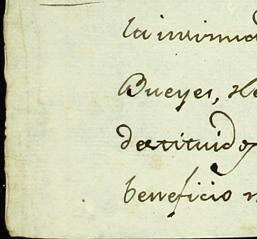 la insinua
Bueyes, He
destituidos
beneficio